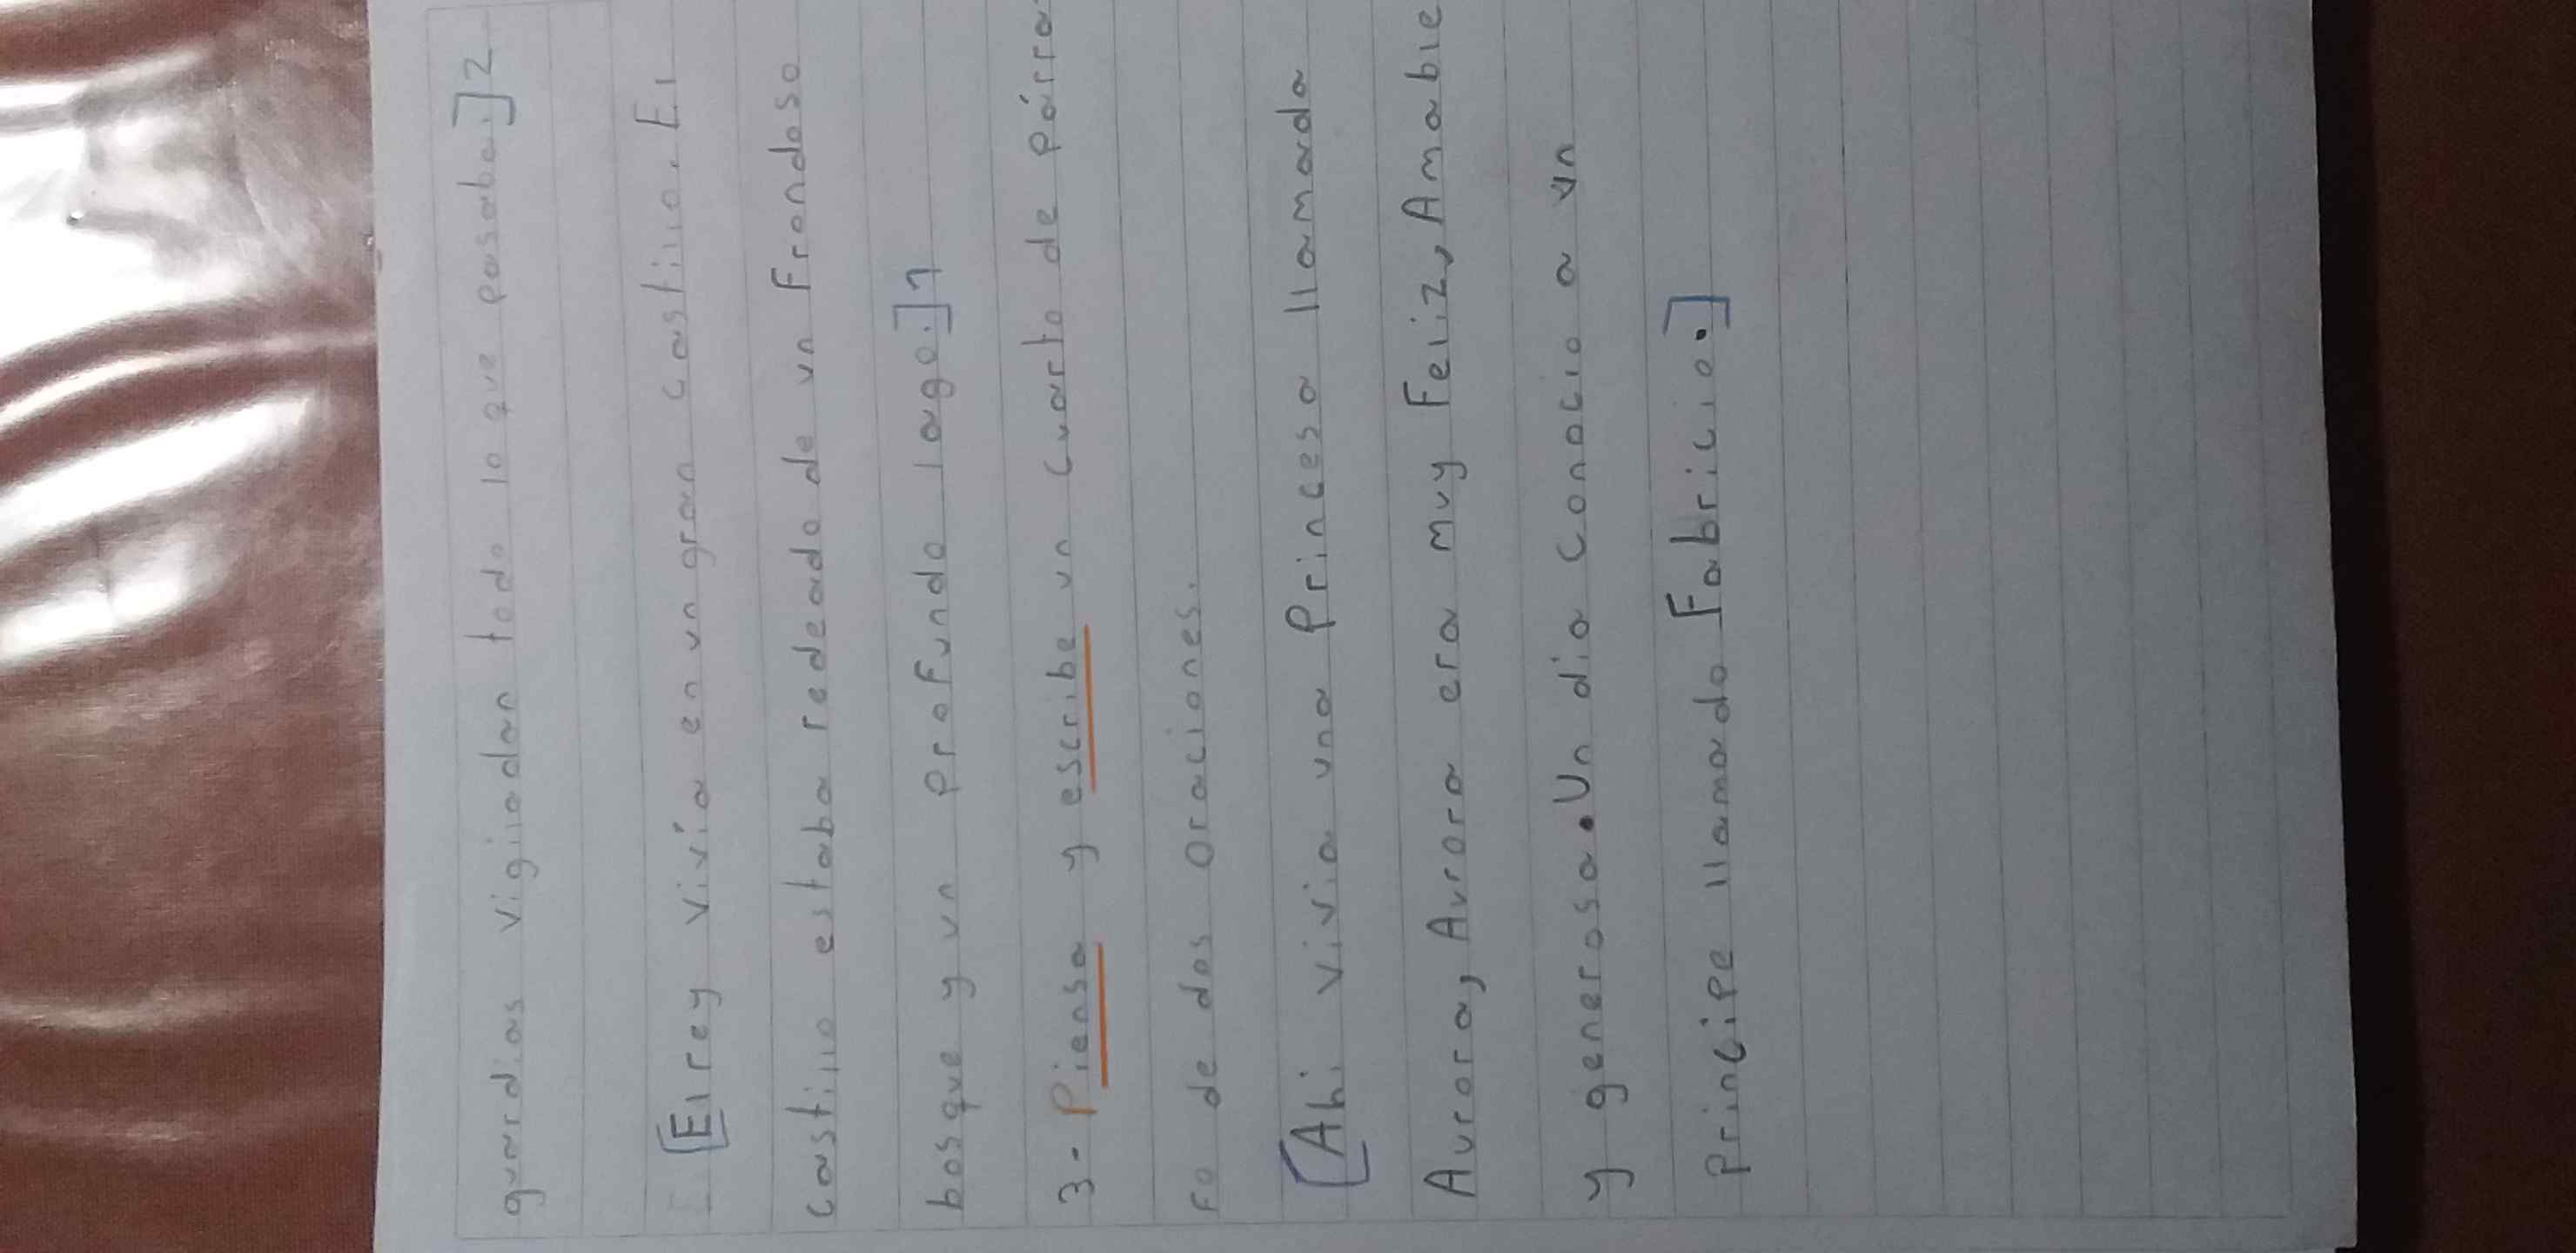 guardias vigiladan todo lo que pasaba.]2
[El rey vivía en un gran castillo. El
castillo estaba redeado de un frondoso
bosque y un profundo lago.]1
3- Piensa y escribe un cuarto de párra-
fo de dos oraciones.
[Ahi vivia una Princesa llamada
Aurora, Aurora era muy Feliz, Amable
y generosa. Un dia conocio a un
principe llamado Fabricio.]